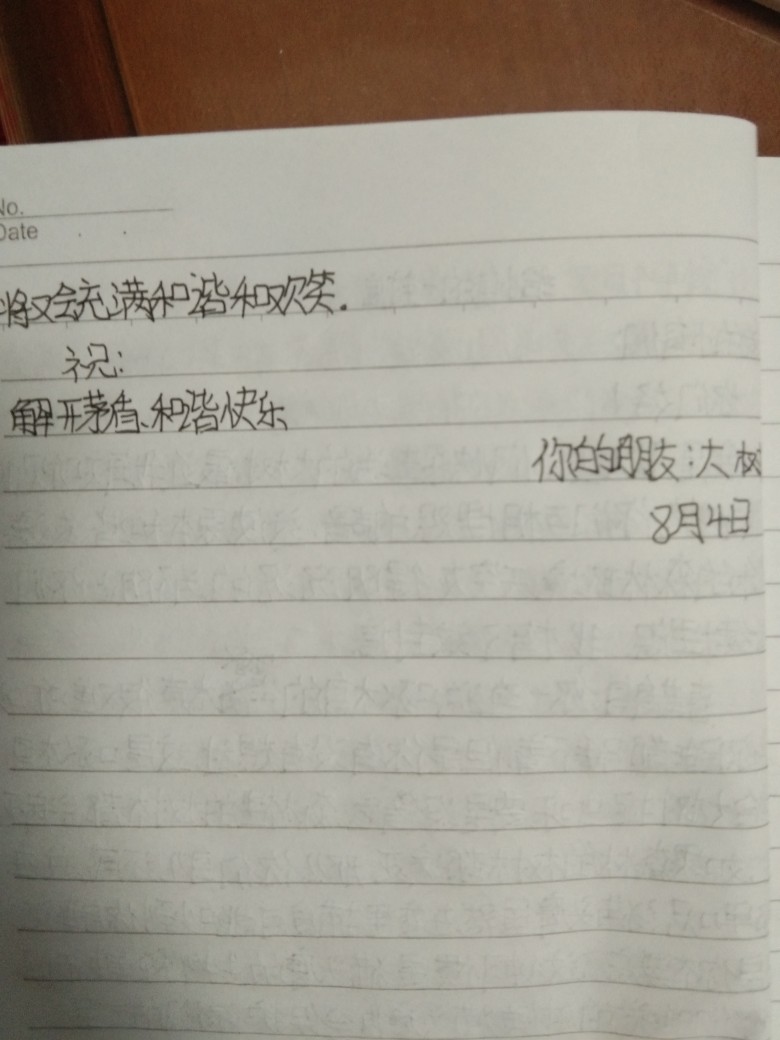 No.
Date
将又会充满和谐和欢笑.
祝:
解开茅盾、和谐快乐
你的朋友:大树
8月4日